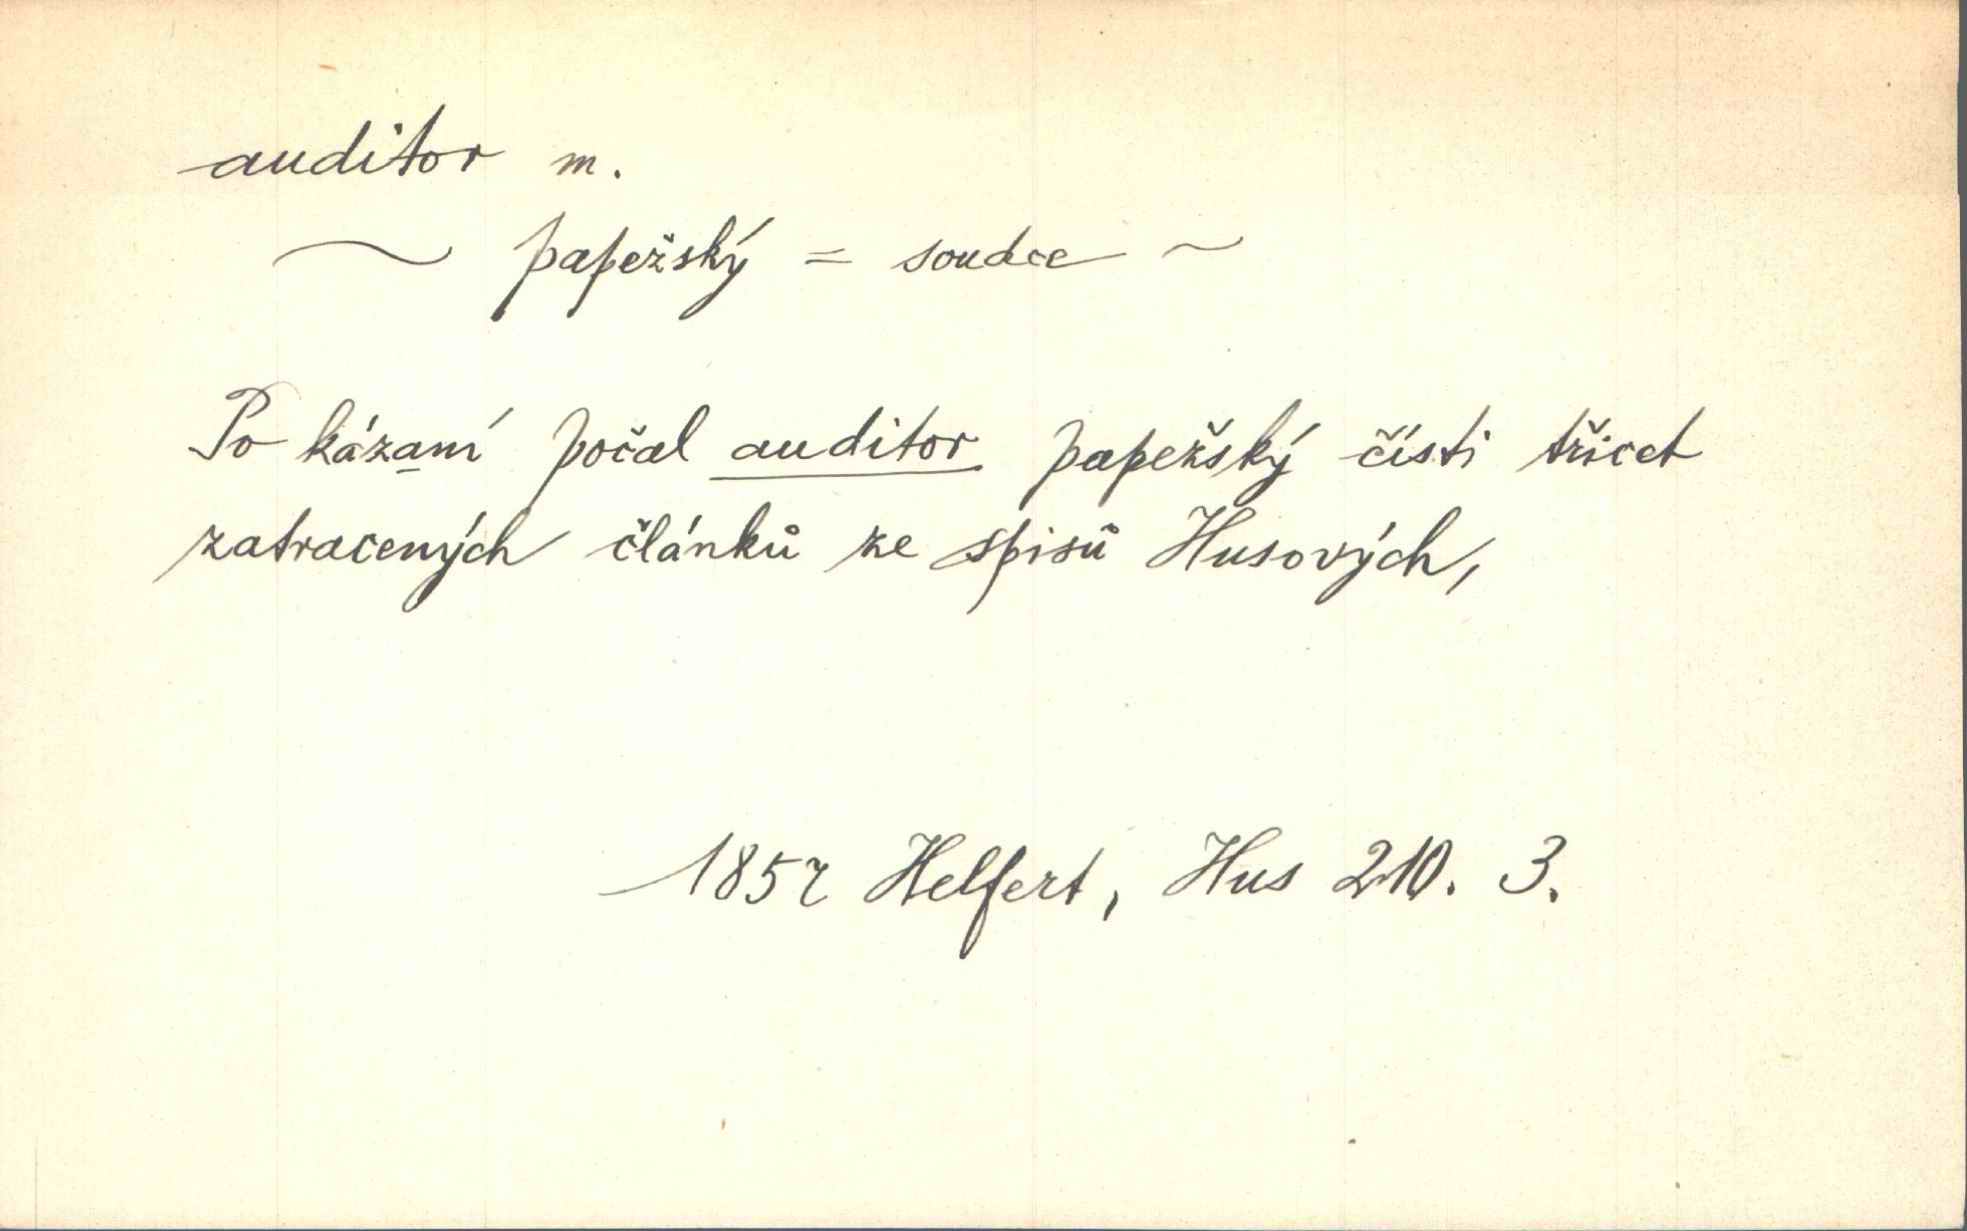 auditor m.
~ papežský = soudce ~
Po kázaní počal auditor papežský čísti třicet
zatracených článků ze spisů Husových,
1857 Helfert, Hus 210. 3.